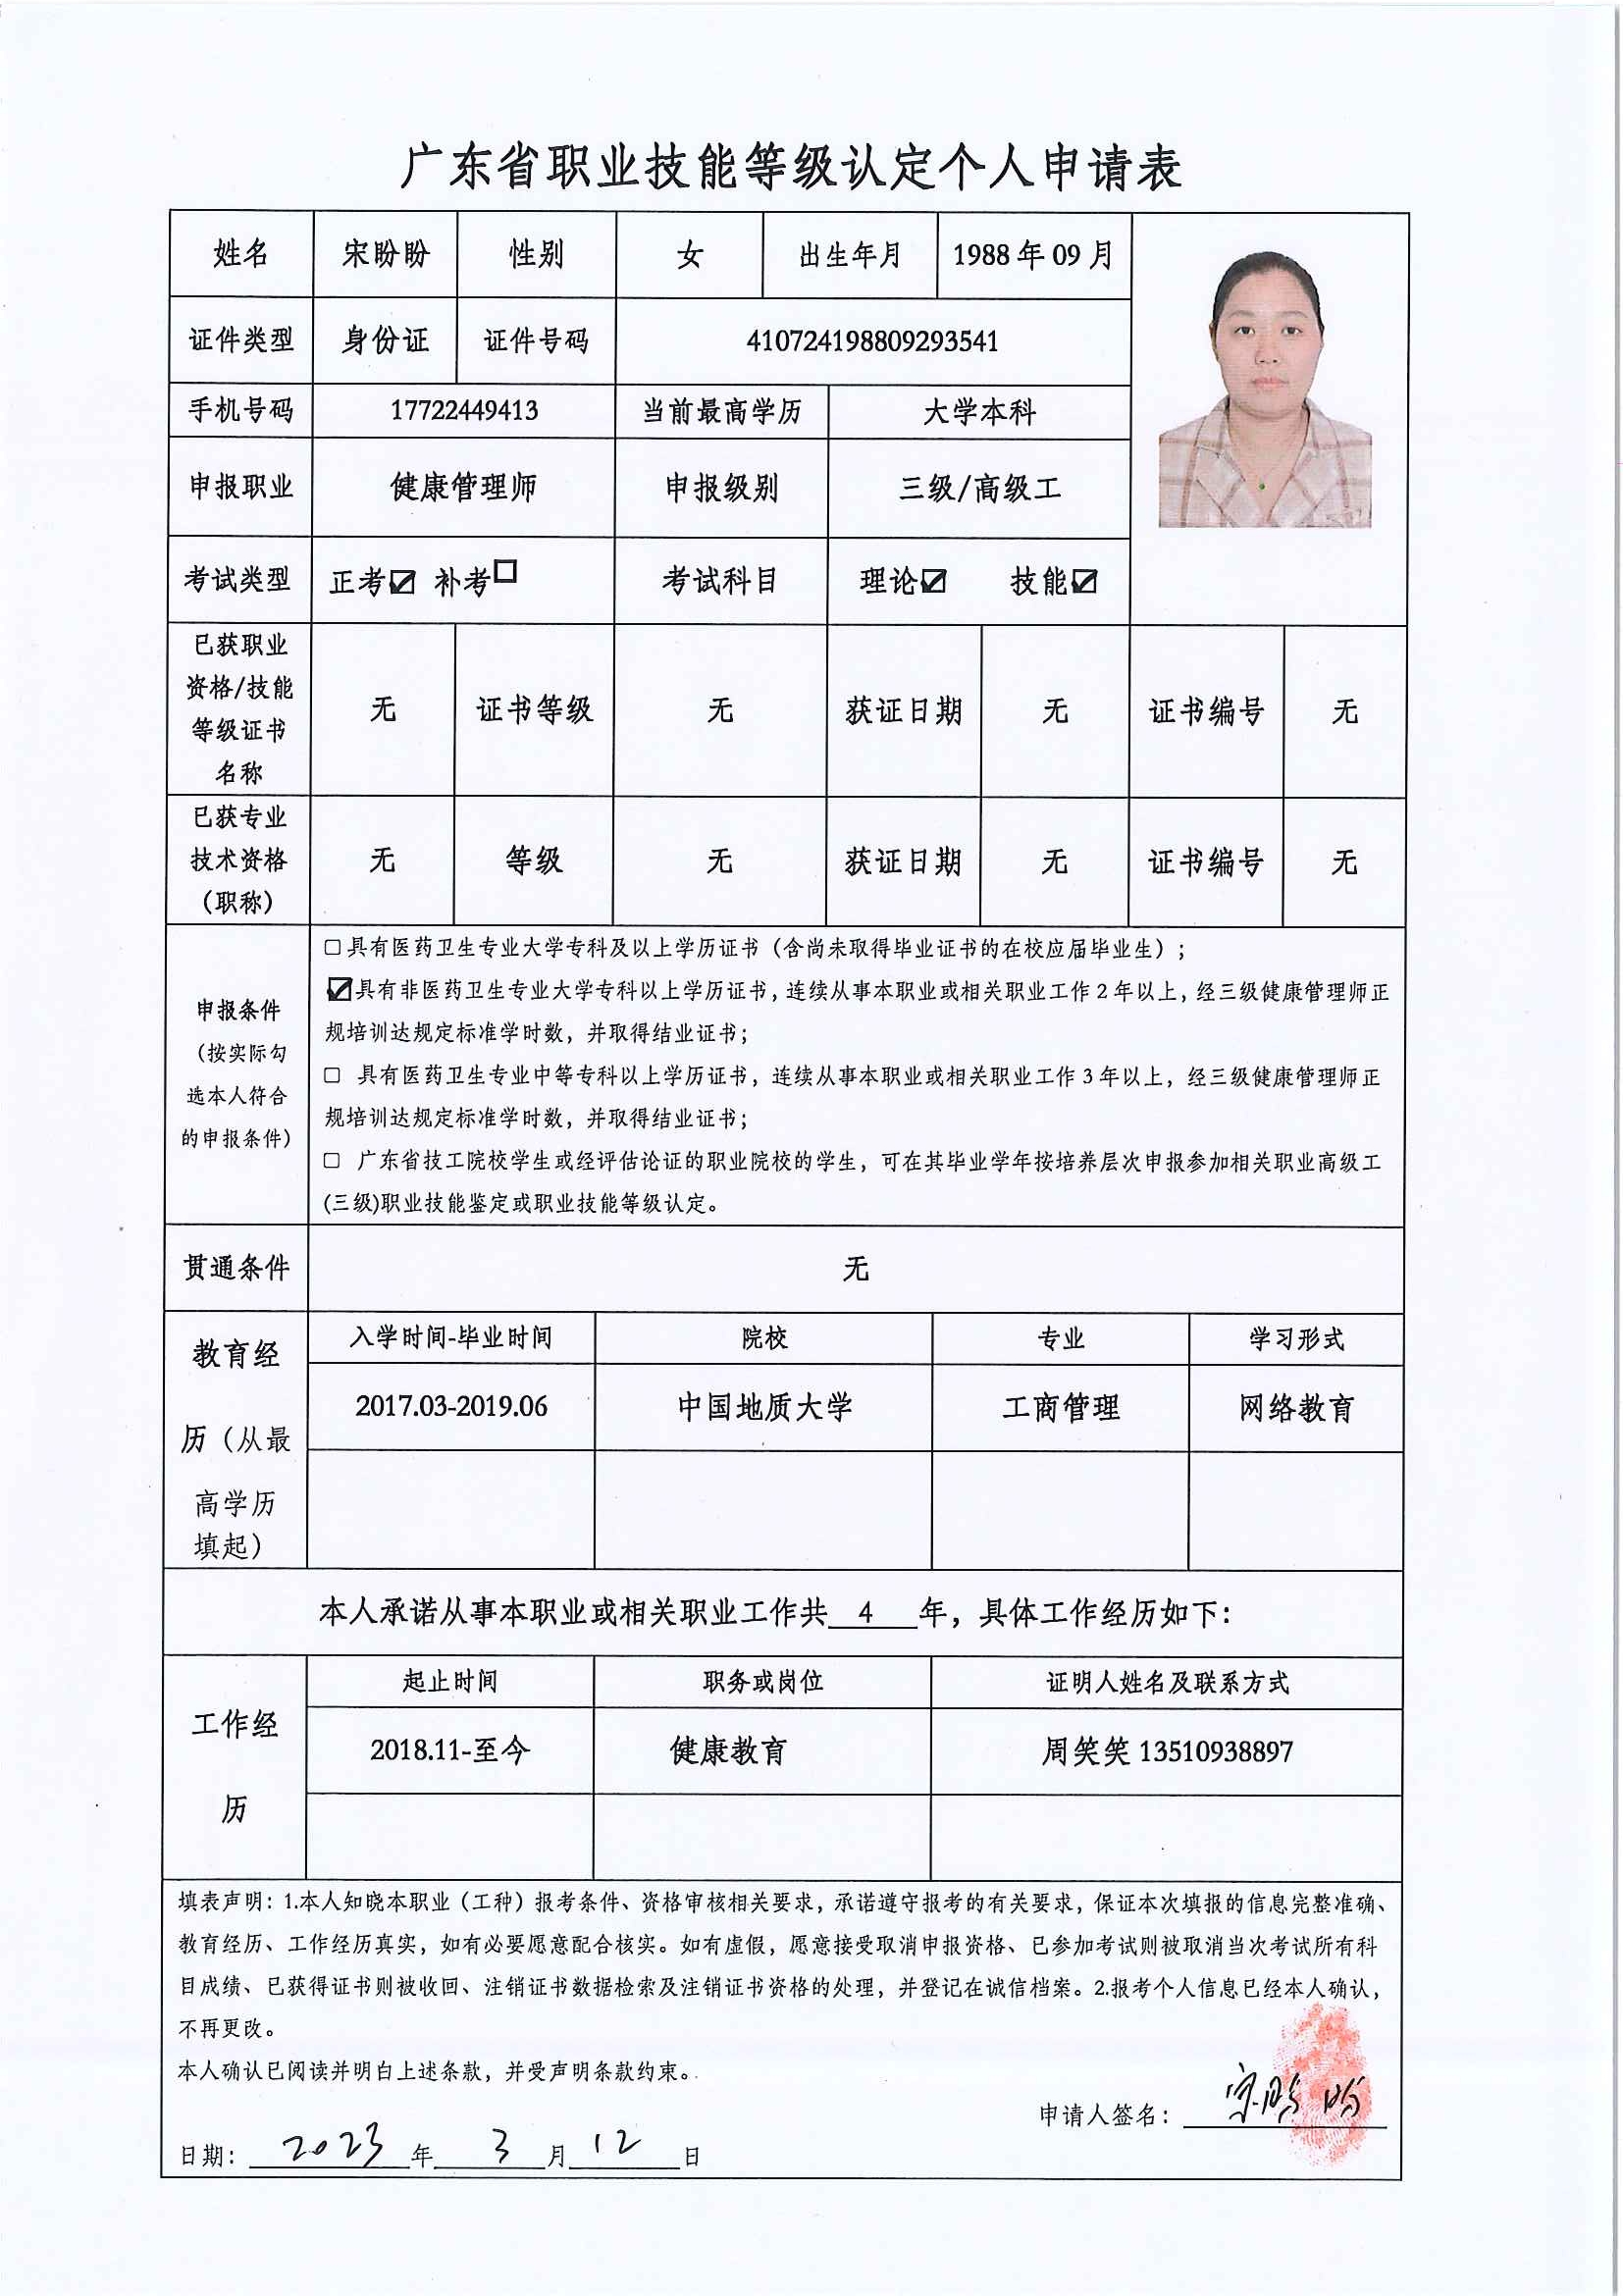 广东省职业技能等级认定个人申请表
姓名 宋盼盼 性别 女 出生年月 1988 年 09 月
证件类型 身份证 证件号码 410724198809293541
手机号码 17722449413 当前最高学历 大学本科
申报职业 健康管理师 申报级别 三级/高级工
考试类型 正考☑ 补考☐ 考试科目 理论☑ 技能☑
已获职业
资格/技能
等级证书
名称
无 证书等级 无 获证日期 无 证书编号 无
已获专业
技术资格
（职称）
无 等级 无 获证日期 无 证书编号 无
申报条件
（按实际勾
选本人符合
的申报条件）
☐具有医药卫生专业大学专科及以上学历证书（含尚未取得毕业证书的在校应届毕业生）；
☑具有非医药卫生专业大学专科以上学历证书，连续从事本职业或相关职业工作 2 年以上，经三级健康管理师正
规培训达规定标准学时数，并取得结业证书；
☐ 具有医药卫生专业中等专科以上学历证书，连续从事本职业或相关职业工作 3 年以上，经三级健康管理师正
规培训达规定标准学时数，并取得结业证书；
☐ 广东省技工院校学生或经评估论证的职业院校的学生，可在其毕业学年按培养层次申报参加相关职业高级工
(三级)职业技能鉴定或职业技能等级认定。
贯通条件 无
教育经
历（从最
高学历
填起）
入学时间-毕业时间 院校 专业 学习形式
2017.03-2019.06 中国地质大学 工商管理 网络教育
本人承诺从事本职业或相关职业工作共 4 年，具体工作经历如下：
工作经
历
起止时间 职务或岗位 证明人姓名及联系方式
2018.11-至今 健康教育 周笑笑 13510938897
填表声明：1.本人知晓本职业（工种）报考条件、资格审核相关要求，承诺遵守报考的有关要求，保证本次填报的信息完整准确、
教育经历、工作经历真实，如有必要愿意配合核实。如有虚假，愿意接受取消申报资格、已参加考试则被取消当次考试所有科
目成绩、已获得证书则被收回、注销证书数据检索及注销证书资格的处理，并登记在诚信档案。2.报考个人信息已经本人确认，
不再更改。
本人确认已阅读并明白上述条款，并受声明条款约束。
申请人签名：宋盼盼
日期：2023 年 3 月 12 日